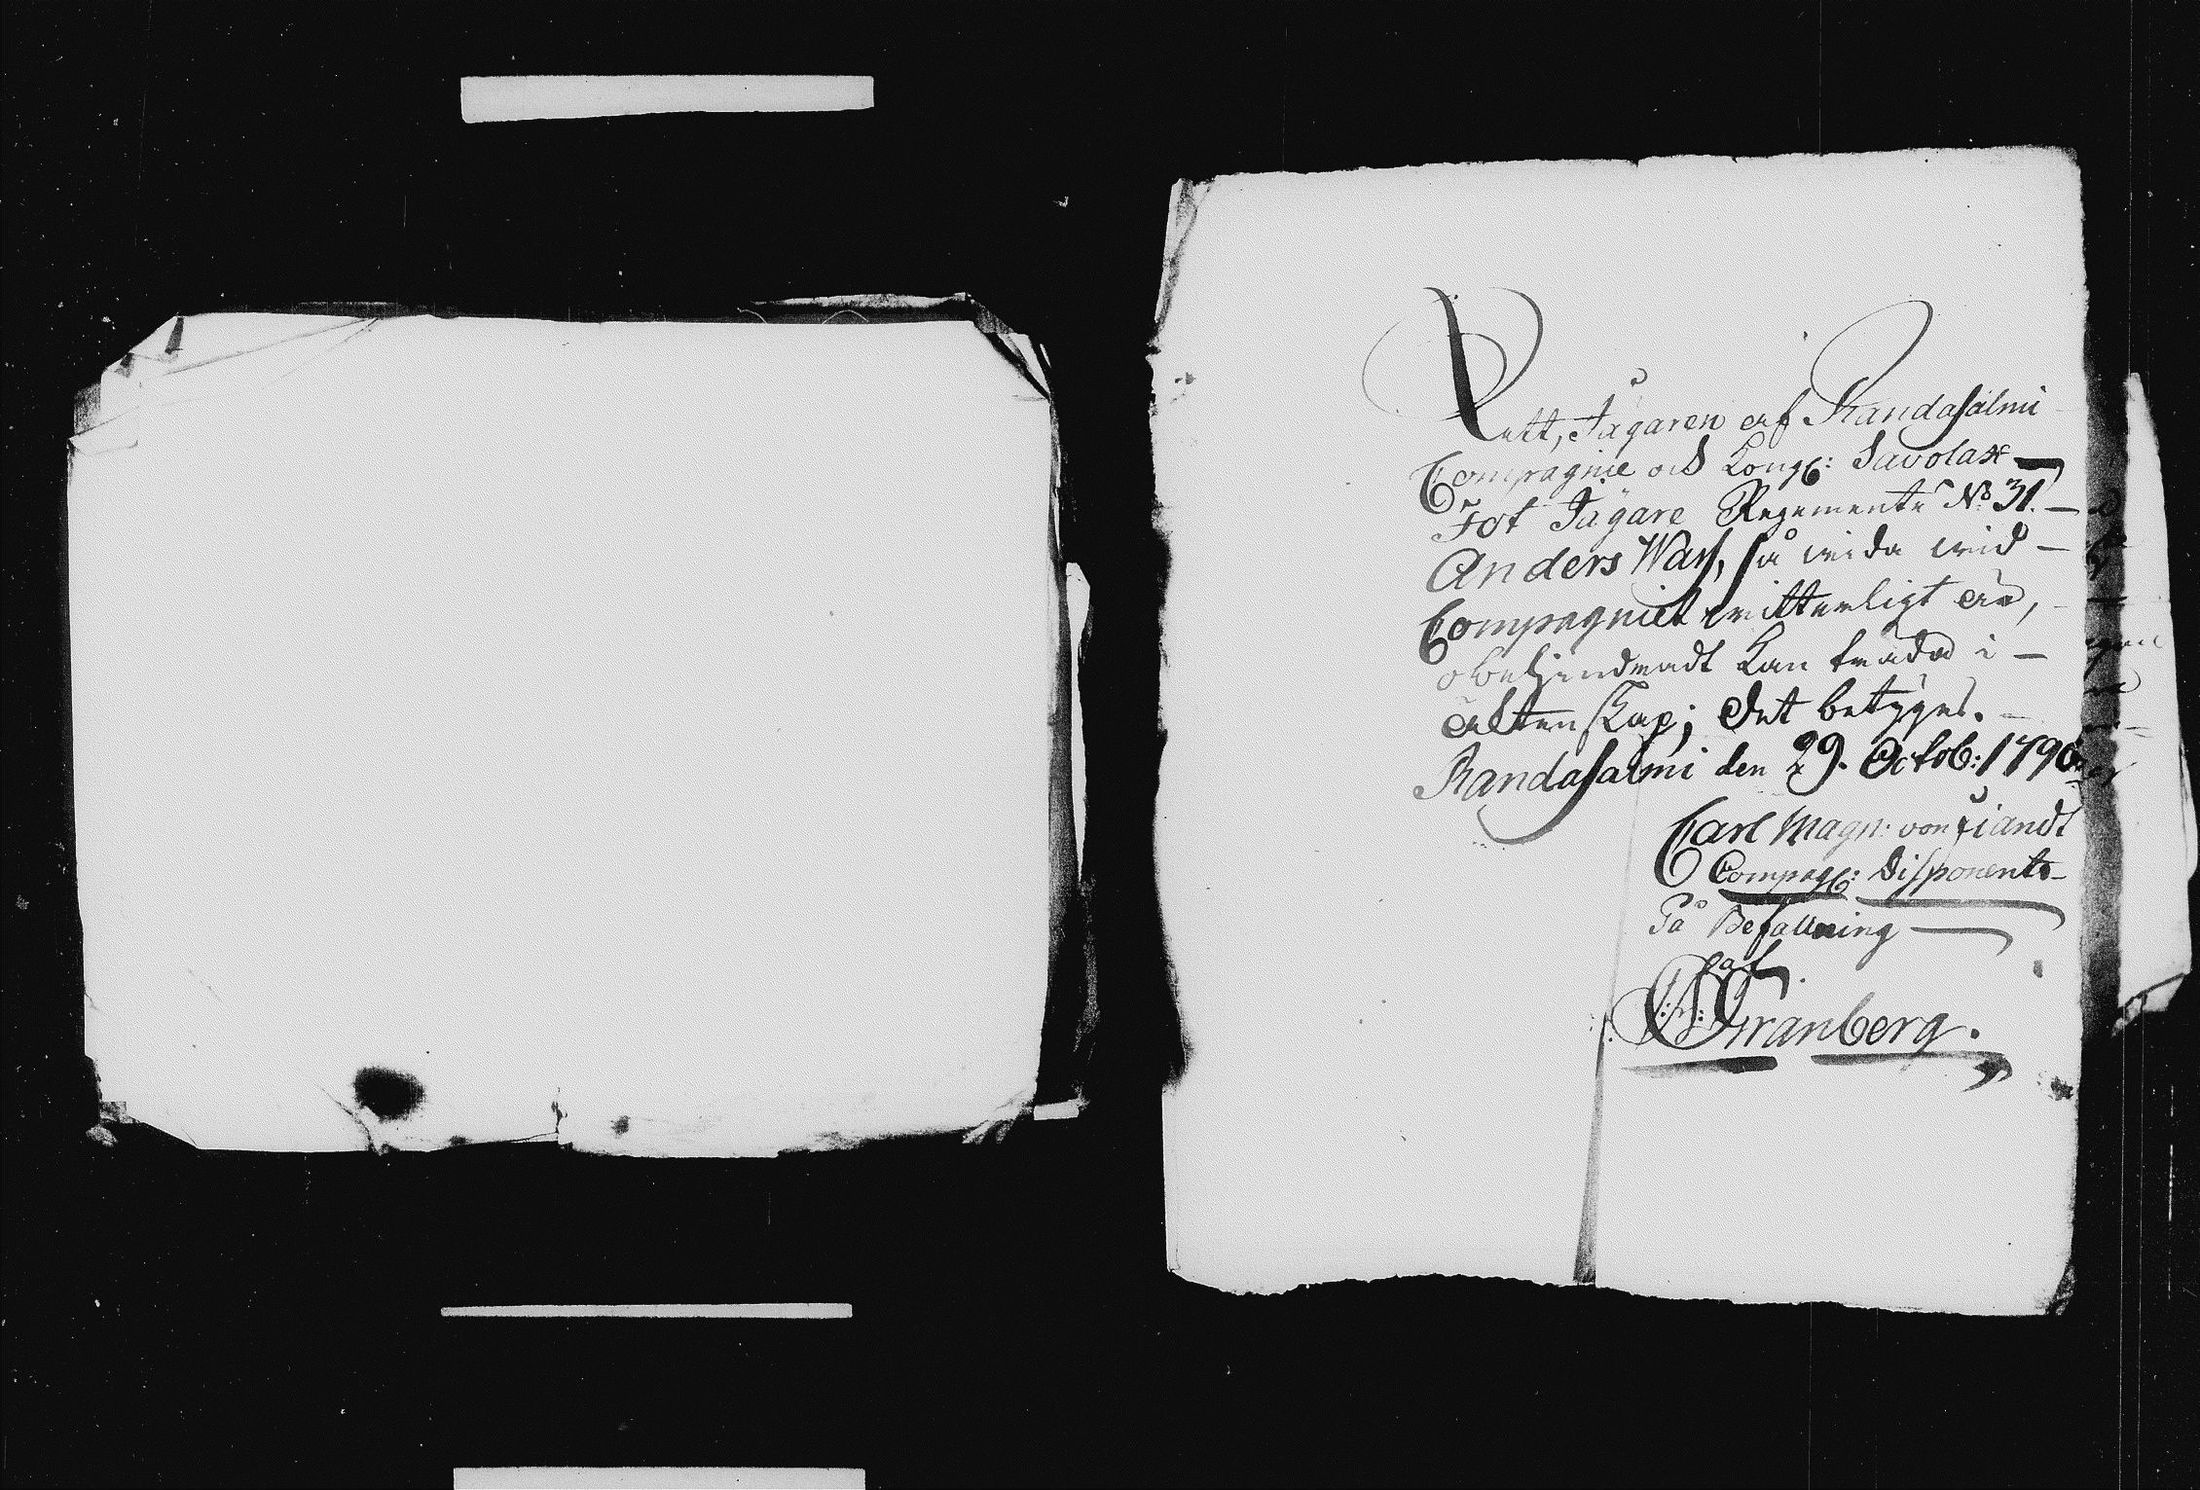 att, Jägaren af Randasalmi
Compagnie och Kongl: Savolax
Fot Jägare Regemente No 31.
Anders Wass, så vida vid
Compagniet witterligt är,
obehindradt kan träda i
äktenskap; det betyges.
Randasalmi den 29. Octob: 1790.
Carl Magn: von Fiandt
Compagn: Disponent
På Befallning
af
Granberg.